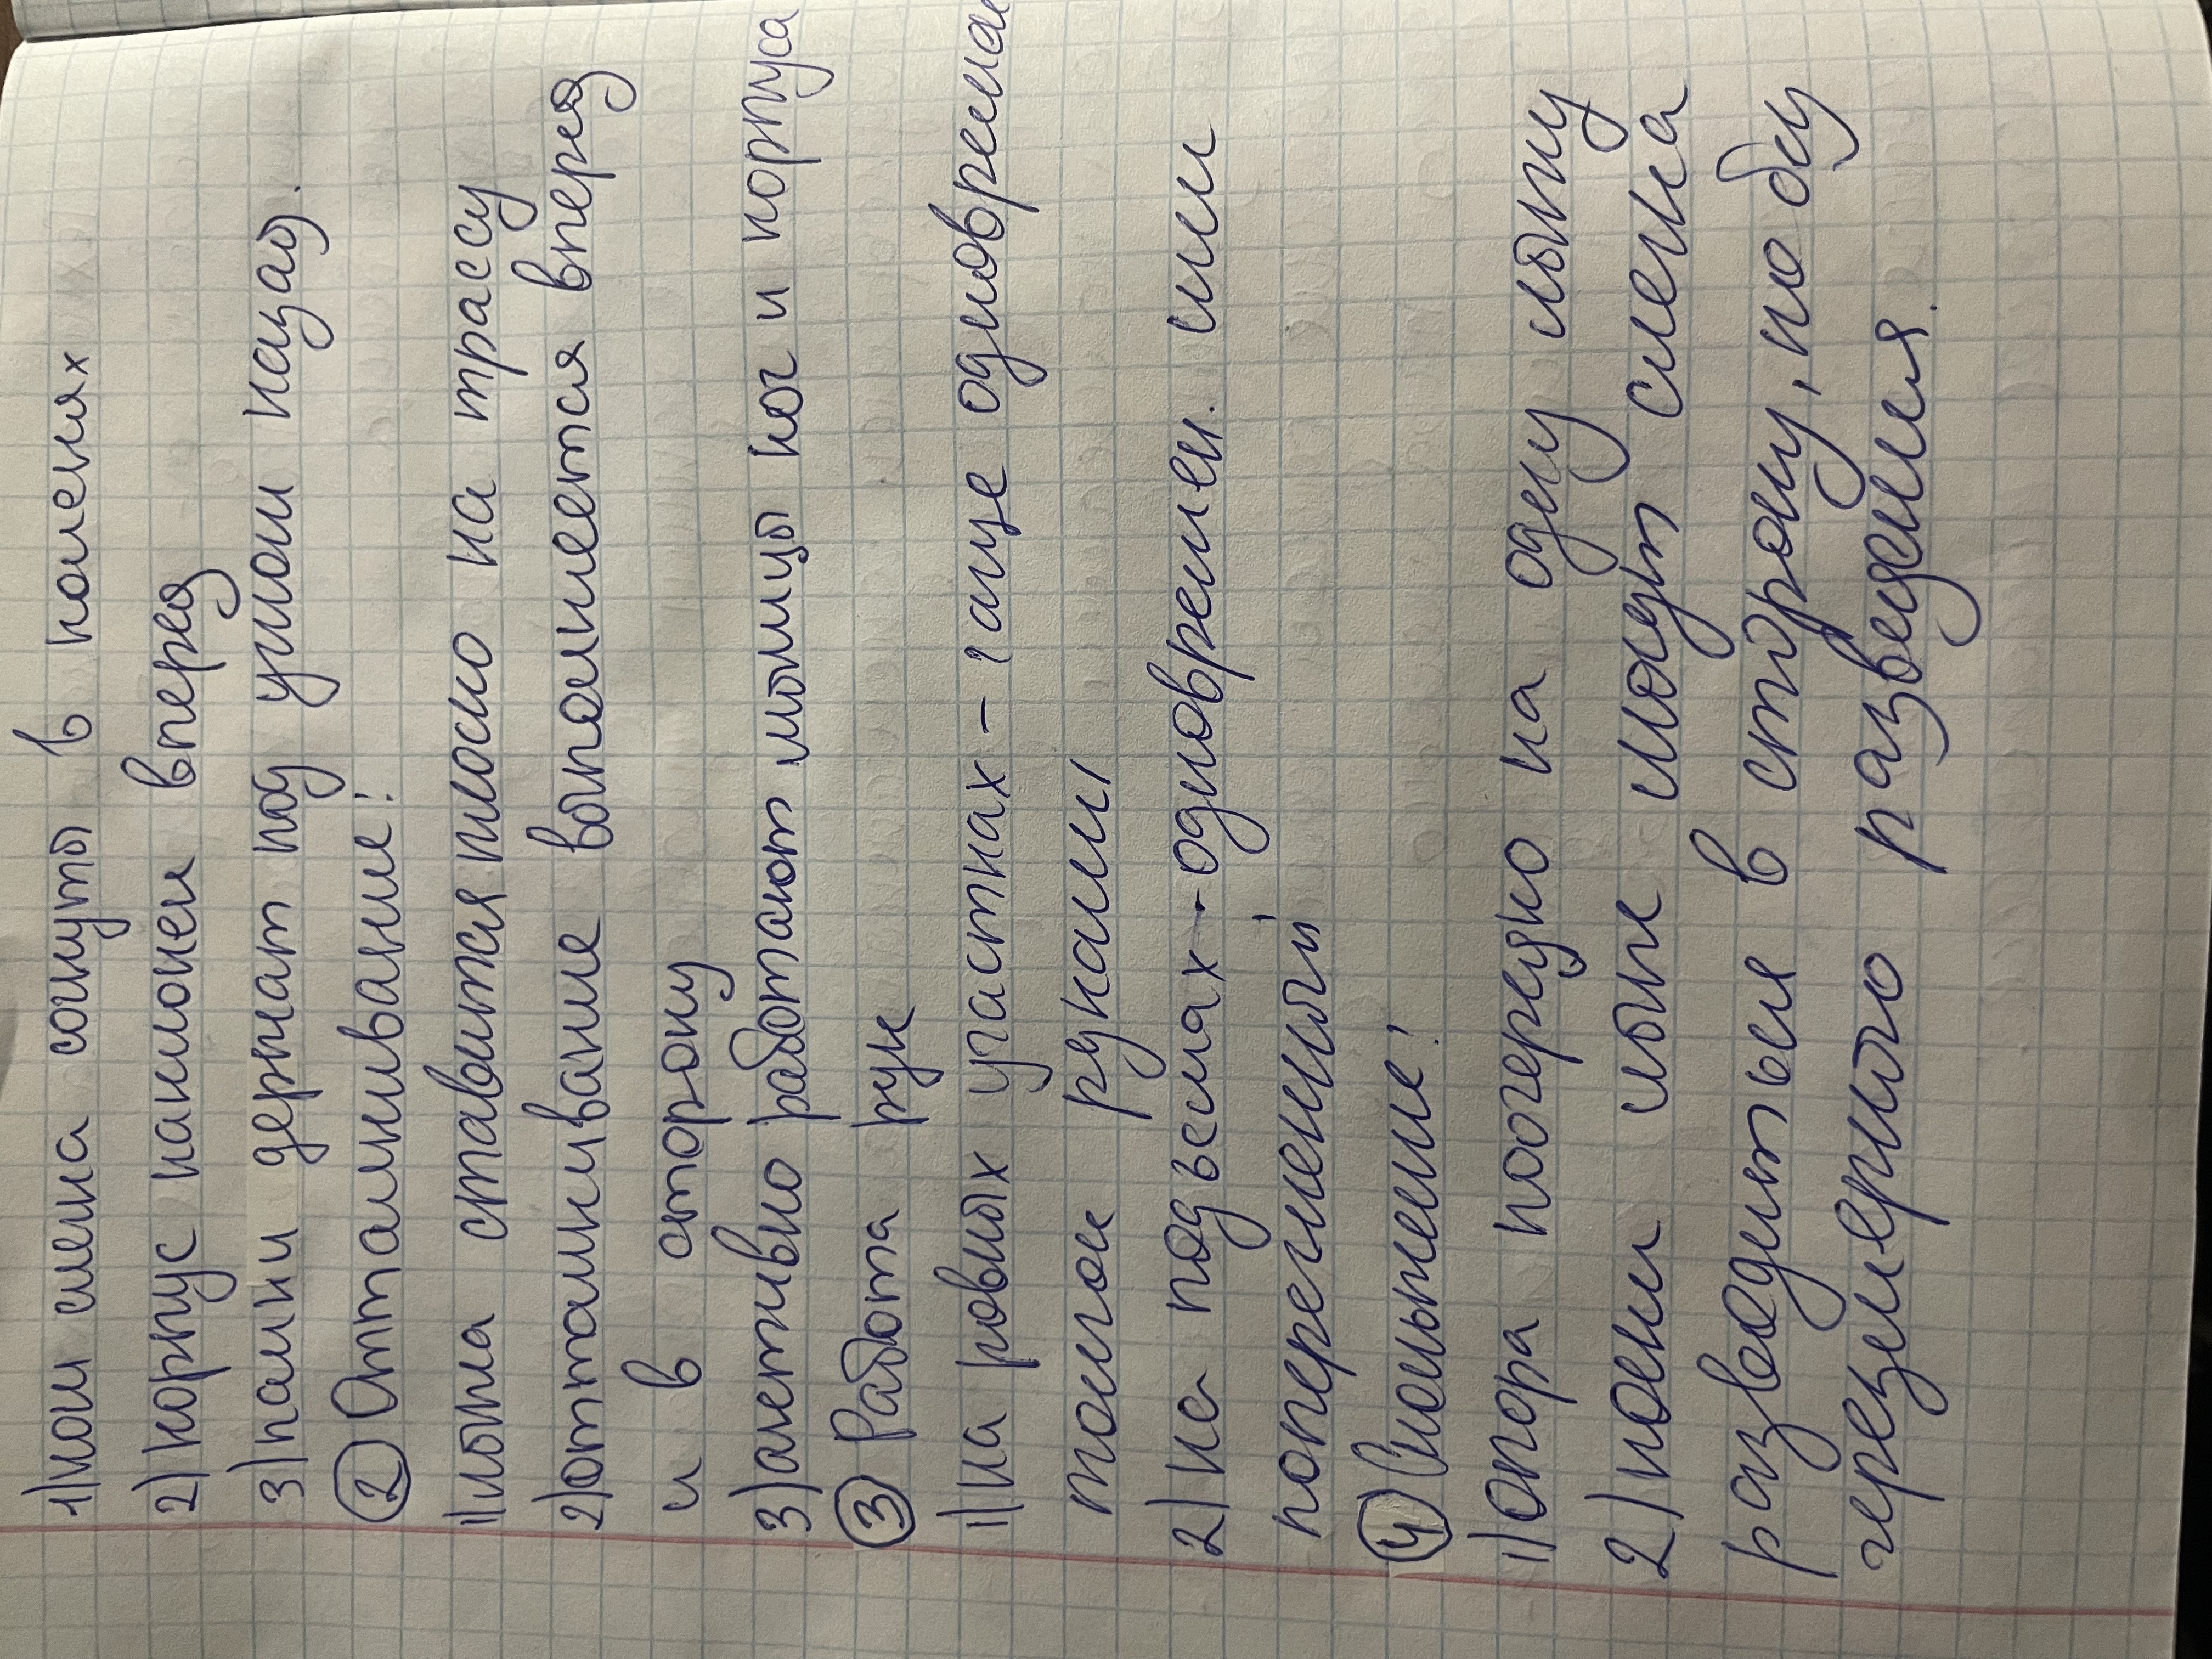 1) ноги слегка согнуты в коленях
2) корпус наклонен вперед
3) палки держат под углом назад.
② Отталкивание:
1) лыжа ставится плоско на трассу
2) отталкивание выполняется вперед
и в сторону
3) активно работают мышцы ног и корпуса
③ Работа рук
1) на ровных участках - чаще одновремен
толчок руками
2) на подъемах - одновремен. или
попеременный
④ Скольжение:
1) опора поочередно на одну лыжу
2) носки лыж могут слегка
разводиться в сторону, но без
чрезмерного разведения.